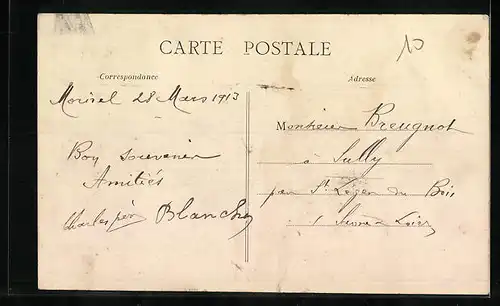 CARTE POSTALE
Correspondance
Adresse
28 Mars 1913
Bon souvenir
Amitiés
Charles Blanche
Monsieur Breugnot
à Sully
par St Léger du Bois
Saone & Loire